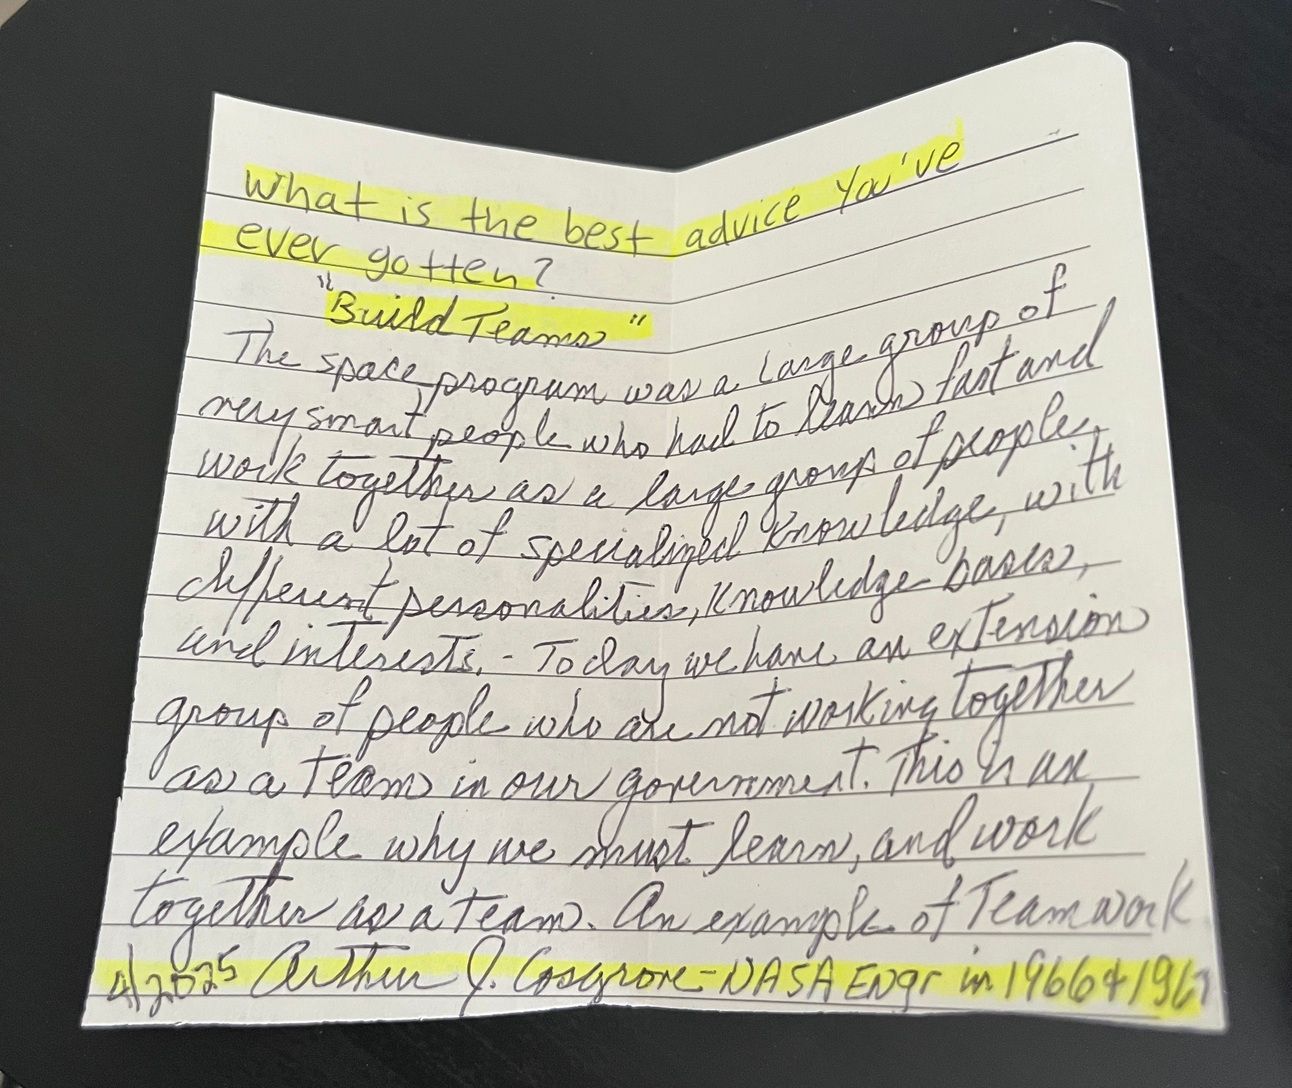 What is the best advice You've
ever gotten?
"Build Teams"
The space program was a large group of
very smart people who had to learn fast and
work together as a large group of people,
with a lot of specialized knowledge, with
different personalities, knowledge bases,
and interests. - Today we have an extension
group of people who are not working together
as a team in our government. This is an
example why we must learn, and work
together as a team. An example of Teamwork
4/2025 Arthur J. Cosgrove - NASA Engr in 1966 & 1967